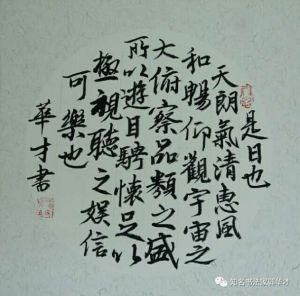 是日也
天朗氣清惠風
和暢仰觀宇宙之
大俯察品類之盛
所以遊目騁懷足以
極視聽之娱信
可樂也
華才書
知名书法家邱华才